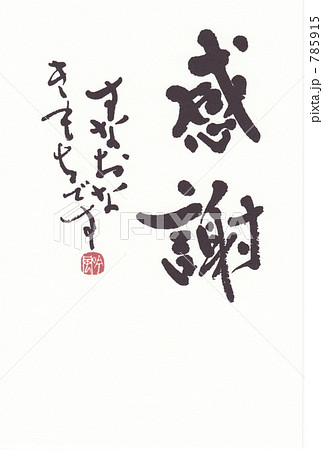 感謝
すなおな
きもちです
吟風
PIXTA
pixta.jp - 785915